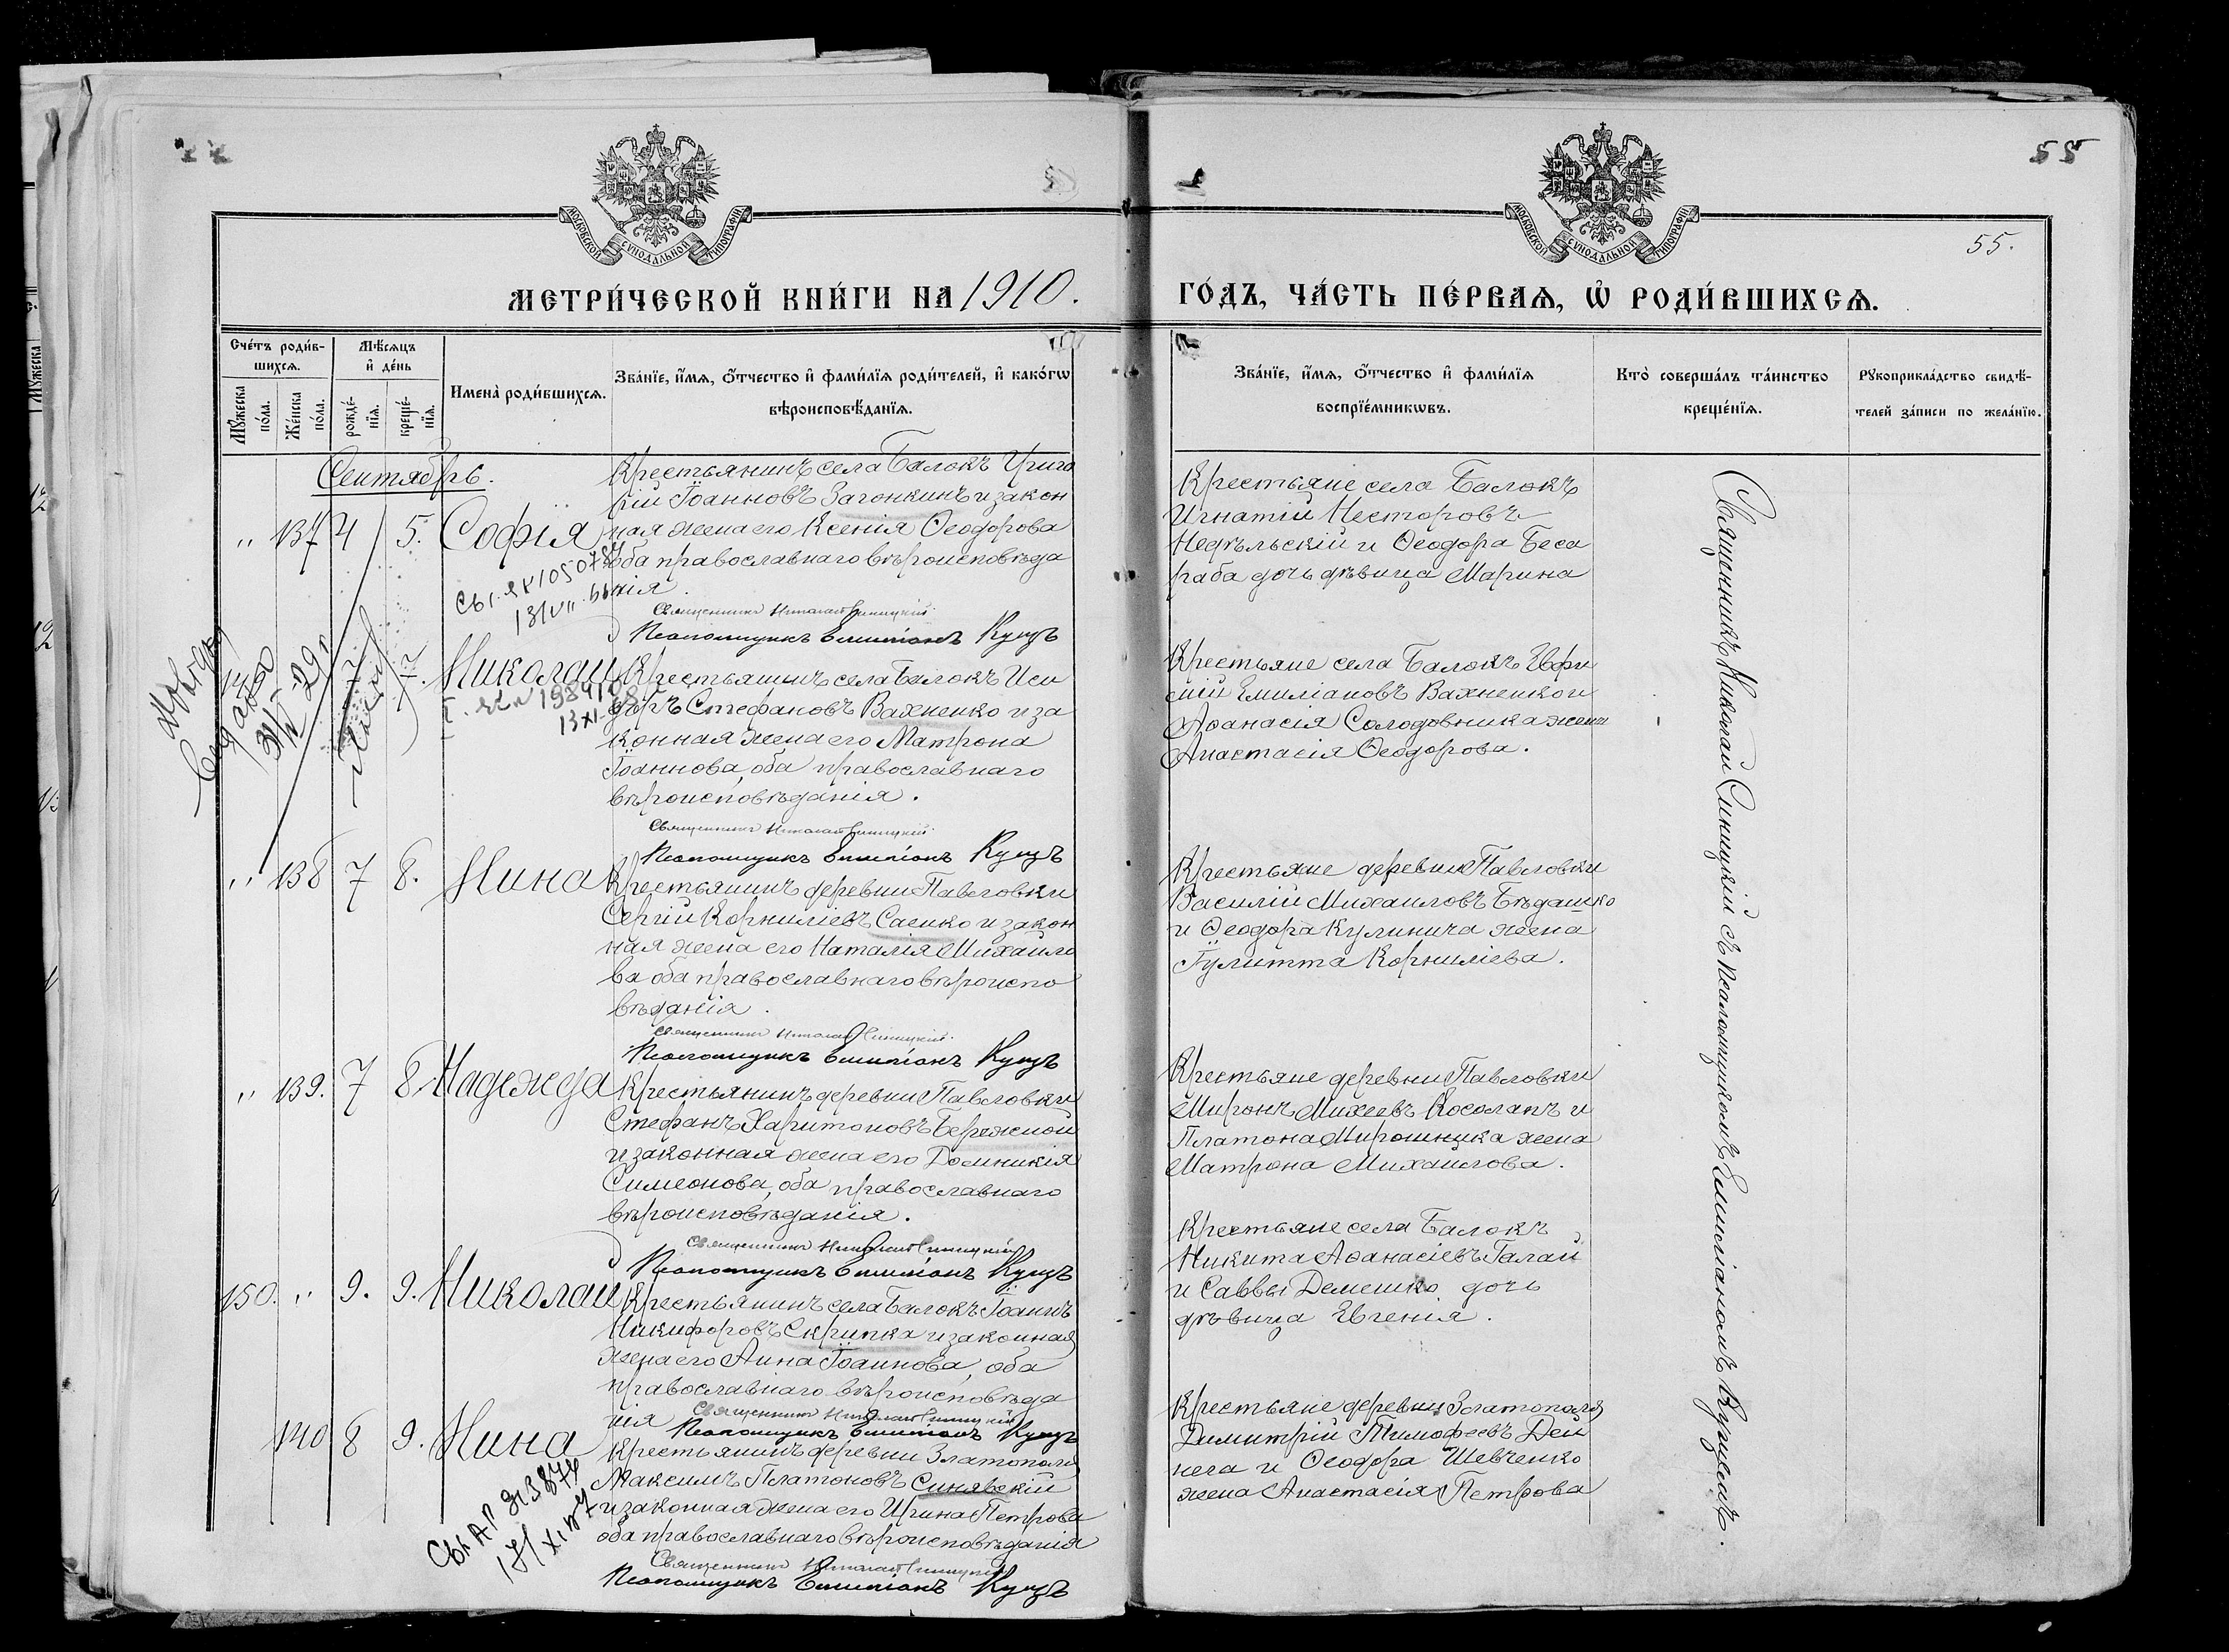 55
55.
МОСКОВСКОЙ СУНОДАЛЬНОЙ ТИПОГРАФІИ
МОСКОВСКОЙ СУНОДАЛЬНОЙ ТИПОГРАФІИ
МЕТРИ́ЧЕСКОЙ КНИ́ГИ НА 1910.
ГО́ДЪ, ЧА́СТЬ ПЕ́РВАѦ, Ѡ҆ РОДИ́ВШИХСѦ.
Сче́тъ роди́в-
шихсѧ.
Мꙋ́жеска по́ла.
Же́нска по́ла.
Мѣ́сѧцъ
и҆ де́нь
рожде́-
нїѧ.
креще́-
нїѧ.
Имена̀ роди́вшихсѧ.
Зва́нїе, и҆́мѧ, ѻ҆́тчество и҆ фами́лїѧ роди́телей, и҆ како́гѡ
вѣроисповѣ́данїѧ.
Зва́нїе, и҆́мѧ, ѻ҆́тчество и҆ фами́лїѧ
воспрїе́мникѡвъ.
Кто̀ соверша́лъ та́инство
креще́нїѧ.
Рꙋкоприкла́дство свидѣ́-
телей за́писи по жела́нїю.
Сентябрь.
" 137 4 5. Софія
Крестьянинъ села Балокъ Григо
рій Іоанновъ Загонкинъ и закон
ная жена его Ксенія Ѳеодорова
оба православнаго вѣроисповѣда
нія.
Священникъ Николай Синицкій
Псаломщикъ Емиліанъ Кущъ
Крестьяне села Балокъ
Игнатій Несторовъ
Недѣльскій и Ѳеодора Беса
раба дочь дѣвица Марина
7 7. Николай
Крестьянинъ села Балокъ Иси
доръ Стефановъ Вахненко и за
конная жена его Матрона
Іоаннова, оба православнаго
вѣроисповѣданія.
Священникъ Николай Синицкій
Псаломщикъ Емиліанъ Кущъ
Крестьяне села Балокъ Евфи
мій Емиліановъ Вахненко и
Аѳанасія Солодовника жена
Анастасія Ѳеодорова.
" 138 7 8. Нина
Крестьянинъ деревни Павловки
Сергій Корниліевъ Саенко и закон
ная жена его Наталія Михайло
ва оба православнаго вѣроиспо
вѣданія.
Священникъ Николай Синицкій
Псаломщикъ Емиліанъ Кущъ
Крестьяне деревни Павловки
Василій Михаиловъ Бѣдашко
и Ѳеодора Кулинича жена
Іулитта Корниліева.
" 139. 7 8 Надежда
Крестьянинъ деревни Павловки
Стефанъ Харитоновъ Бережной
и законная жена его Домникія
Симеонова, оба православнаго
вѣроисповѣданія.
Священникъ Николай Синицкій
Псаломщикъ Емиліанъ Кущъ
Крестьяне деревни Павловки
Миронъ Михеевъ Косолапъ и
Платона Мирошника жена
Матрона Михаилова.
150. " 9. 9. Николай
Крестьянинъ села Балокъ Іоаннъ
Никифоровъ Скрипка и законная
жена его Анна Іоаннова, оба
православнаго вѣроисповѣда
нія
Священникъ Николай Синицкій
Псаломщикъ Емиліанъ Кущъ
Крестьяне села Балокъ
Никита Аѳанасіевъ Галай
и Саввы Демешко дочь
дѣвица Евгенія.
140 8 9. Нина
Крестьянинъ деревни Златополя
Максимъ Платоновъ Синявскій
и законная жена его Ирина Петрова
оба православнаго вѣроисповѣданія
Священникъ Николай Синицкій
Псаломщикъ Емиліанъ Кущъ
Крестьяне деревни Златополя
Димитрій Тимофеевъ Дей
нега и Ѳеодора Шевченко
жена Анастасія Петрова
Священникъ Николай Синицкій съ псаломщикомъ Емиліаномъ Кущемъ.